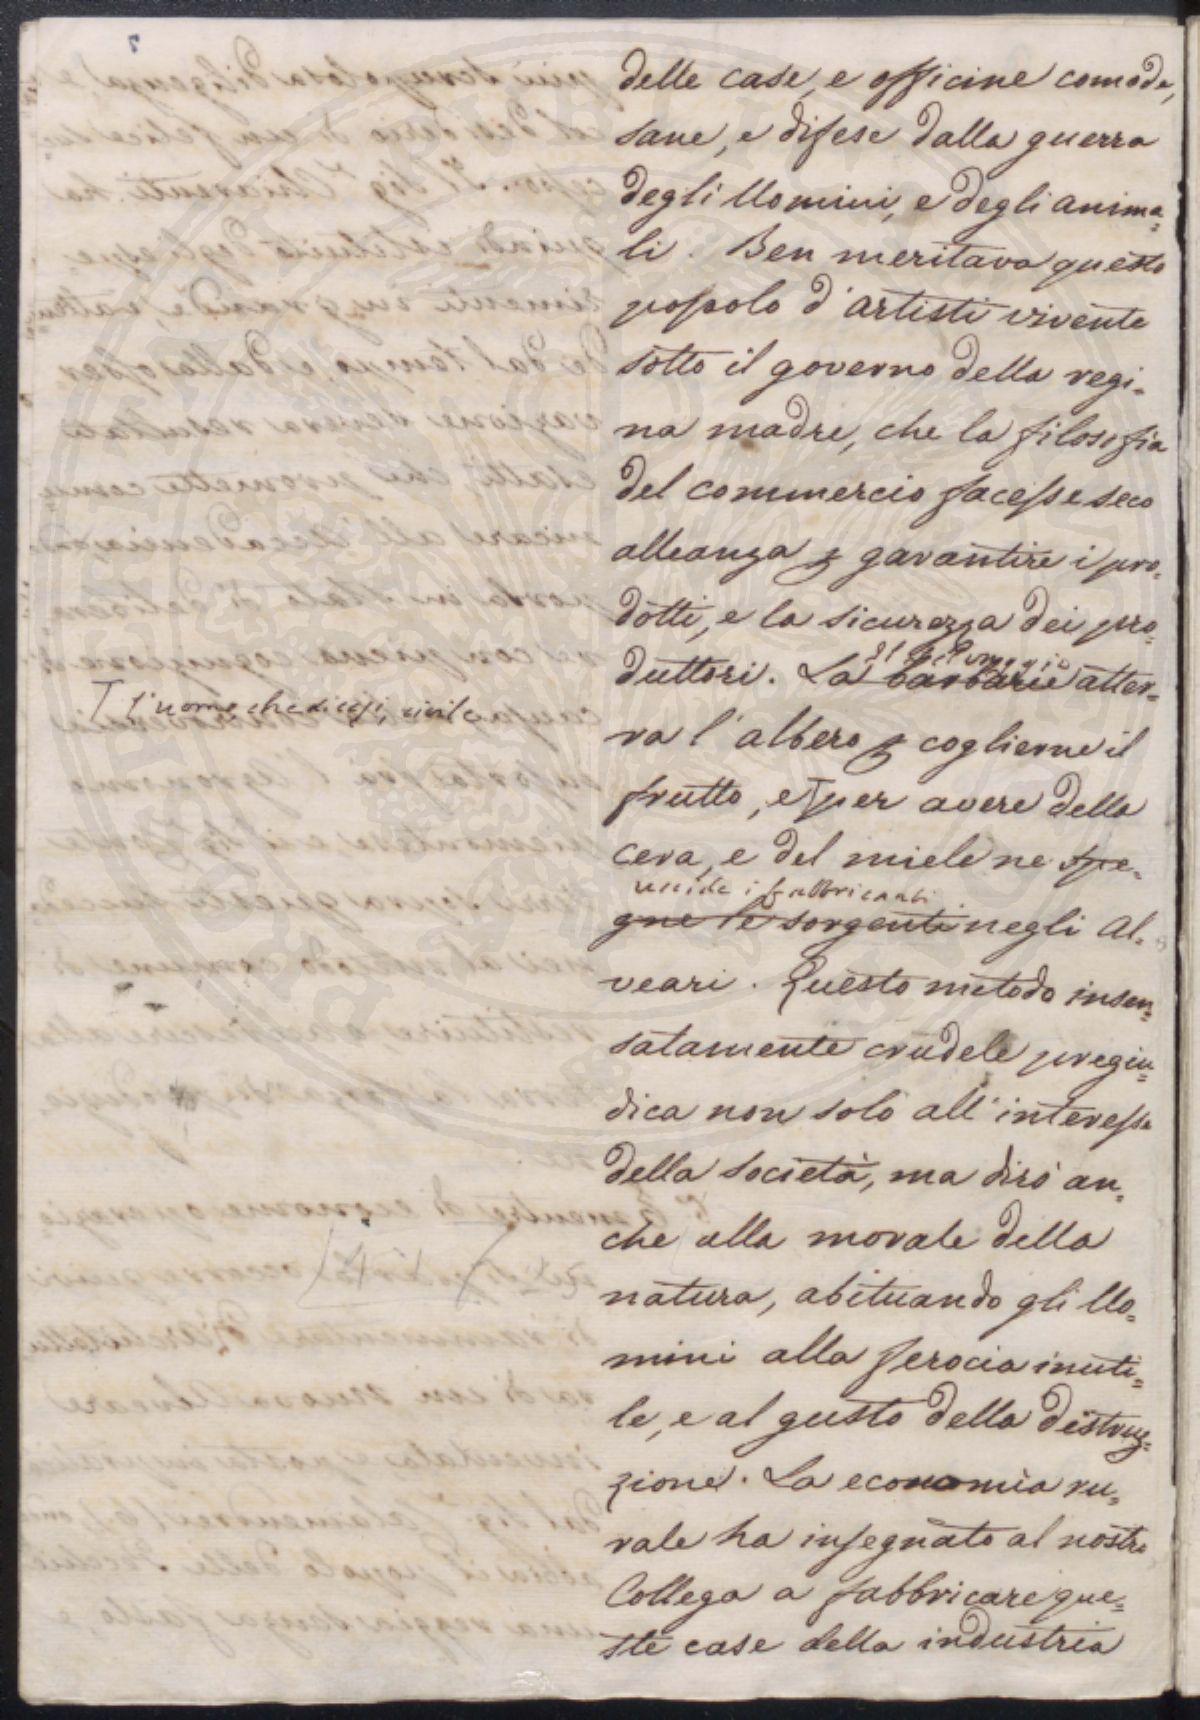 delle case, e officine comode,
sane, e difese dalla guerra
degli Uomini, e degli anima=
li. Ben meritava questo
popolo d'artisti vivente
sotto il governo della regi=
na madre, che la filosofia
del commercio facesse seco
alleanza p garantire i pro=
dotti, e la sicurezza dei pro=
duttori. La barbarie atter=
il selvaggio
ra l'albero p coglierne il
frutto, e T per avere della
T l'uomo che dicesi, civile
cera, e del miele ne spe=
uccide i fabbricanti
gne le sorgenti negli Al=
veari. Questo metodo insen=
satamente crudele pregiu=
dica non solo all'interesse
della società, ma dirò an=
che alla morale della
natura, abituando gli Uo=
mini alla ferocia inuti=
le, e al gusto della distruz=
zione. La economia ru=
rale ha insegnato al nostro
Collega a fabbricare que=
ste case della industria